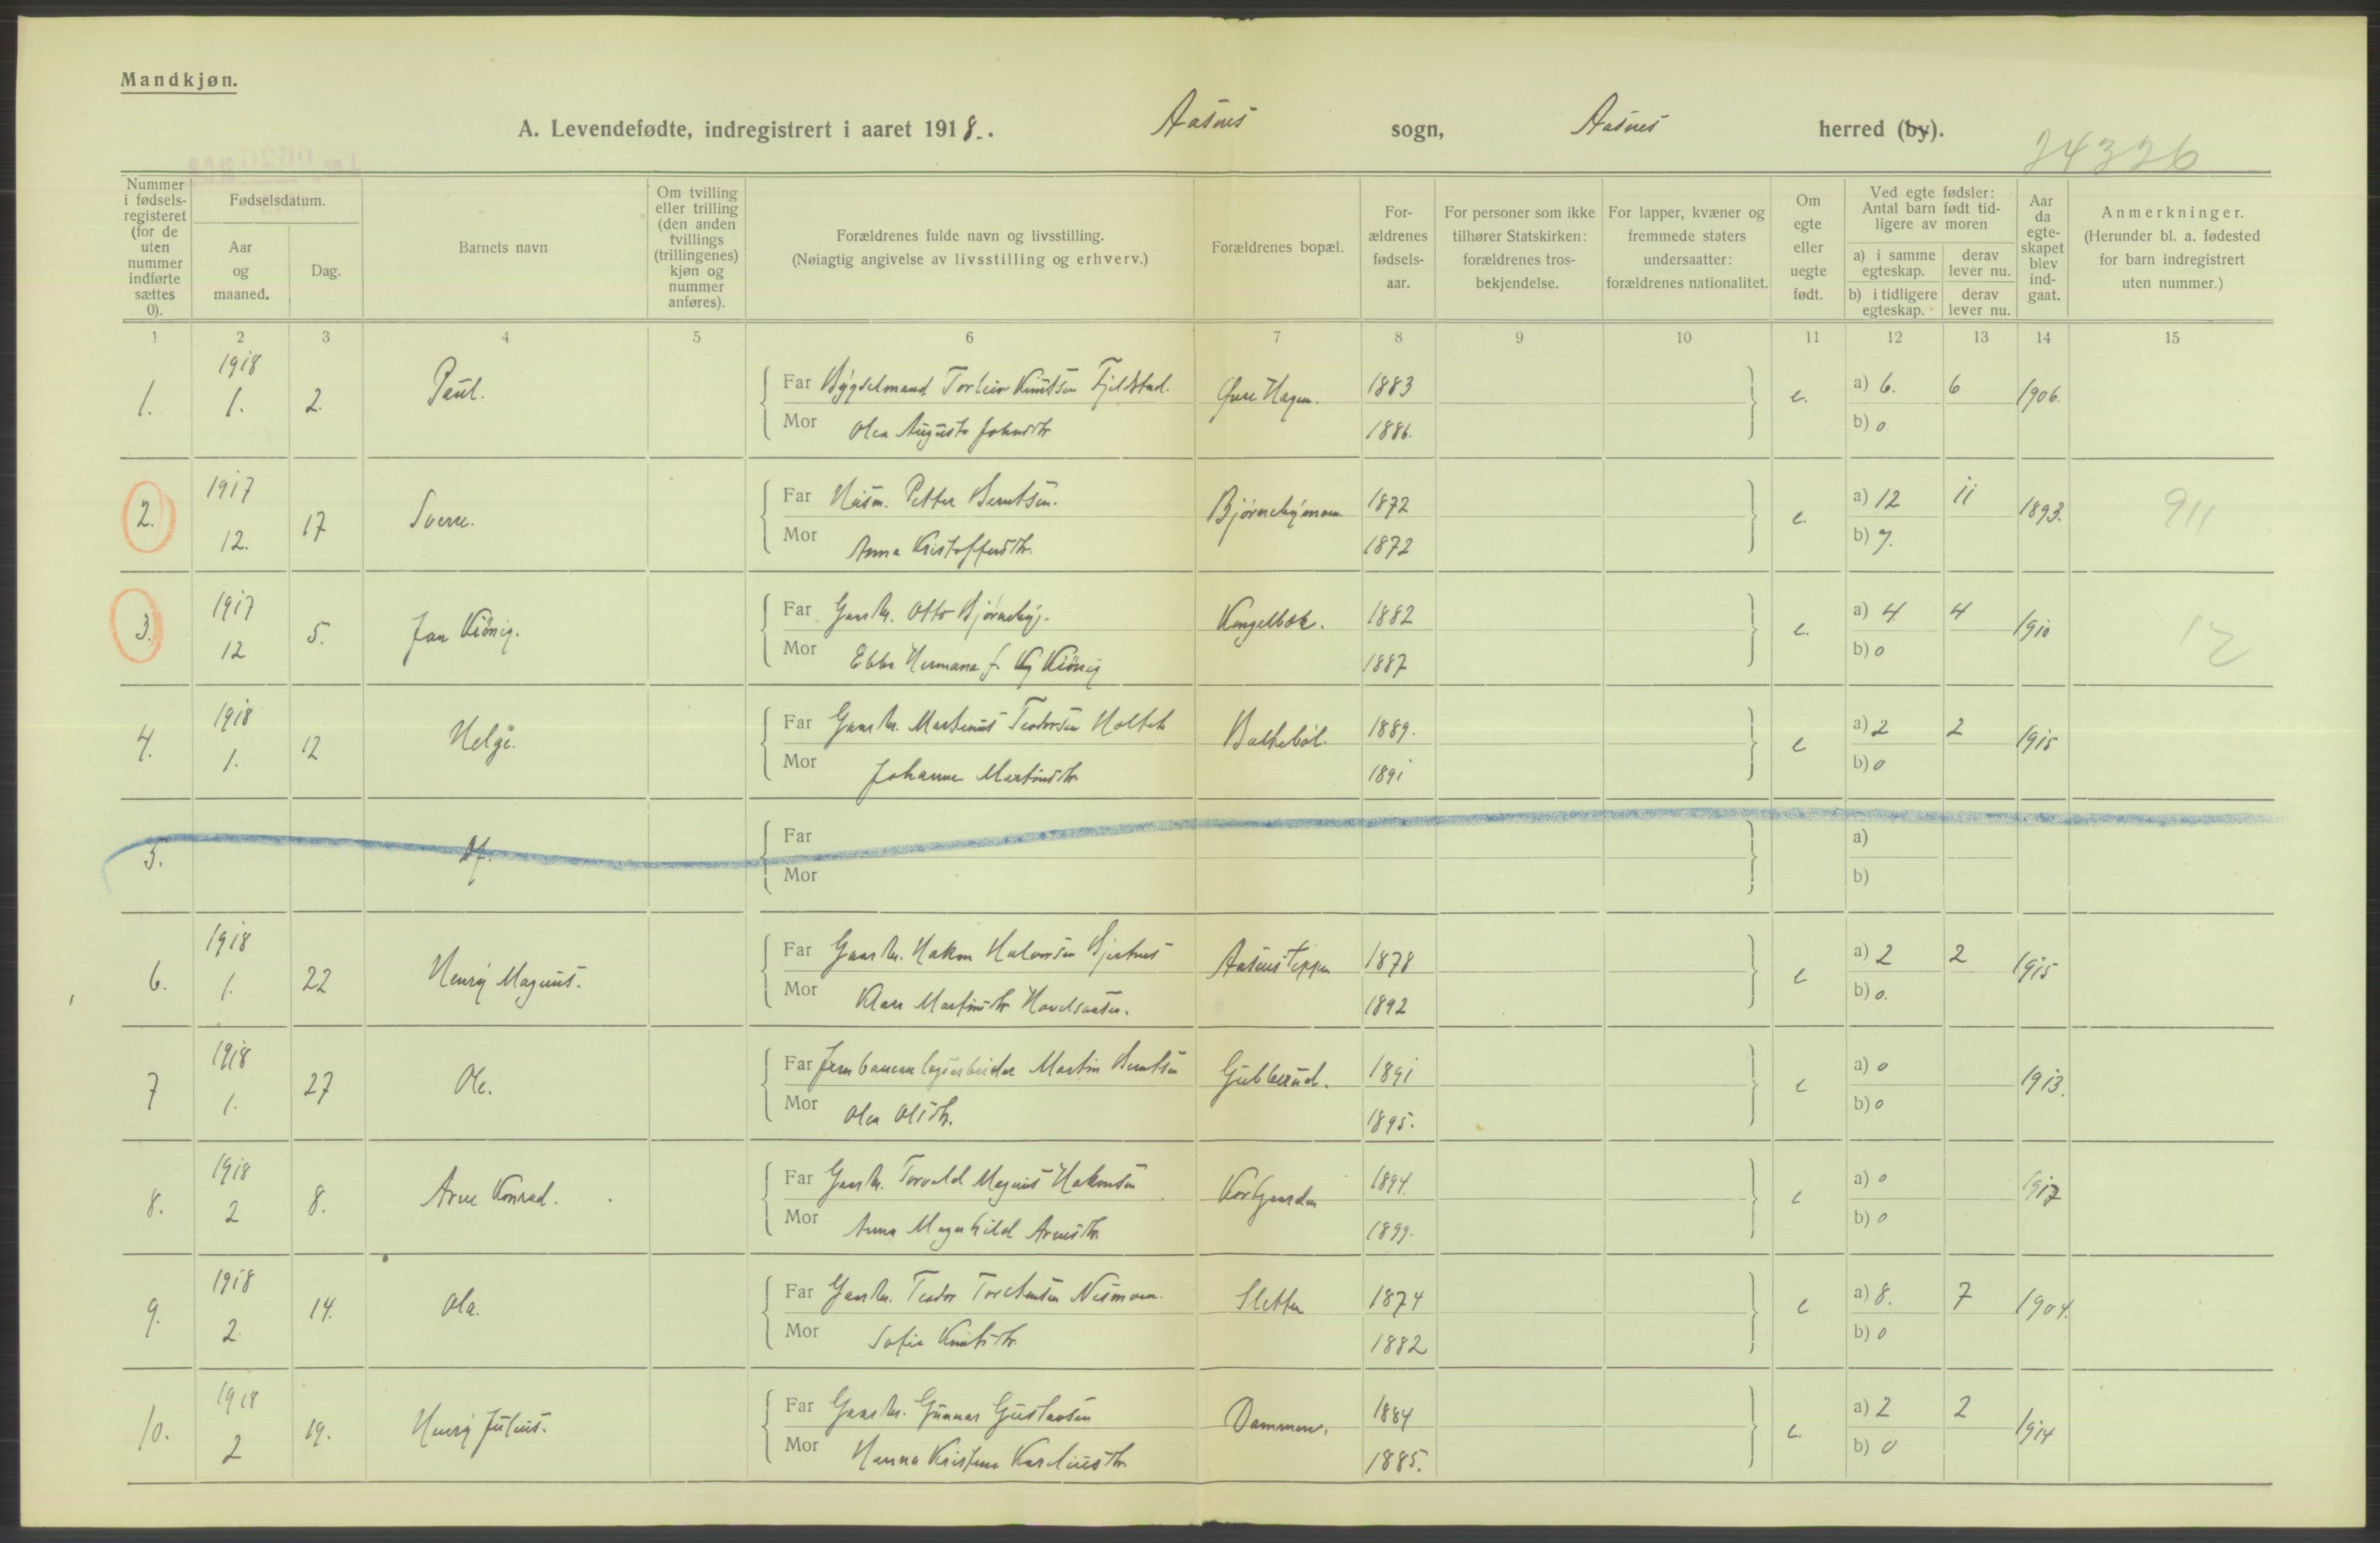 Mandkjøn.
A. Levendefødte, indregistrert i aaret 1918. Aasnes sogn, Aasnes herred (by).
24326
Nummer i fødsels-registeret (for de uten nummer indførte sættes 0).
Fødselsdatum.
Aar og maaned.
Dag.
Barnets navn
Om tvilling eller trilling (den anden tvillings (trillingenes) kjøn og nummer anføres).
Forældrenes fulde navn og livsstilling.
(Nøiagtig angivelse av livsstilling og erhverv.)
Forældrenes bopæl.
For-ældrenes fødsels-aar.
For personer som ikke tilhører Statskirken: forældrenes tros-bekjendelse.
For lapper, kvæner og fremmede staters undersaatter: forældrenes nationalitet.
Om egte eller uegte født.
Ved egte fødsler: Antal barn født tid-ligere av moren
a) i samme egteskap.
derav lever nu.
b) i tidligere egteskap.
derav lever nu.
Aar da egte-skapet blev ind-gaat.
Anmerkninger.
(Herunder bl. a. fødested for barn indregistrert uten nummer.)
1 2 3 4 5 6 7 8 9 10 11 12 13 14 15
1. 1918 1. 2. Paul. Far Bygselmand Torleiv Knutsen Fjeldstad. Øvre Hagen. 1883 e. a) 6. 6 1906.
Mor Olea Augusta Johnsdtr 1886. b) 0.
2. 1917 12. 17 Sverre. Far Husm. Petter Berntsen. Bjørnebymoen. 1872 e. a) 12 11 1893. 911
Mor Anna Kristoffersdtr. 1872 b)
3. 1917 12 5. Jan Kiönig. Far Gaardbr. Otto Bjørneby. 1882 e. a) 4 4 1910 12
Mor Ebba Hermana f. Kiönig 1887 b) 0
4. 1918 1. 12 Helge. Far Gaardbr. Martinius Teodorsen Holtet 1889. e a) 2 2 1915
Mor Johanne Martinsdtr 1891 b) 0
5. Far a)
Mor b)
6. 1918 1. 22 Henry Magnus. Far Gaardbr. Hakon Halvorsen Aasnesteppen 1878 e a) 2 2 1915
Mor Klara Martinsdtr 1892 b) 0.
7 1918 1. 27 Ole. Far Jernbaneanlægsarbeider Martin Berntsen Gubberud. 1891 e a) 0 1913.
Mor Olea Olsdtr. 1895. b) 0
8. 1918 2 8. Arne Konrad. Far Gaardbr. Torvald Magnus Hakonsen 1894. e a) 0 1917
Mor Anna Magnhild Arnesdtr 1899. b) 0
9. 1918 2. 14. Ola. Far Gaardbr. Teodor Torstensen Nesmoen. Sletten 1874 e a) 8. 7 1904.
Mor Sofie Knutsdtr. 1882 b) 0
10. 1918 2 19. Henry Julius. Far Gaardbr. Gunnar Gustavsen Dammen. 1884 e. a) 2 2 1914
Mor Hanna Kristine Kareliusdtr 1885. b) 0